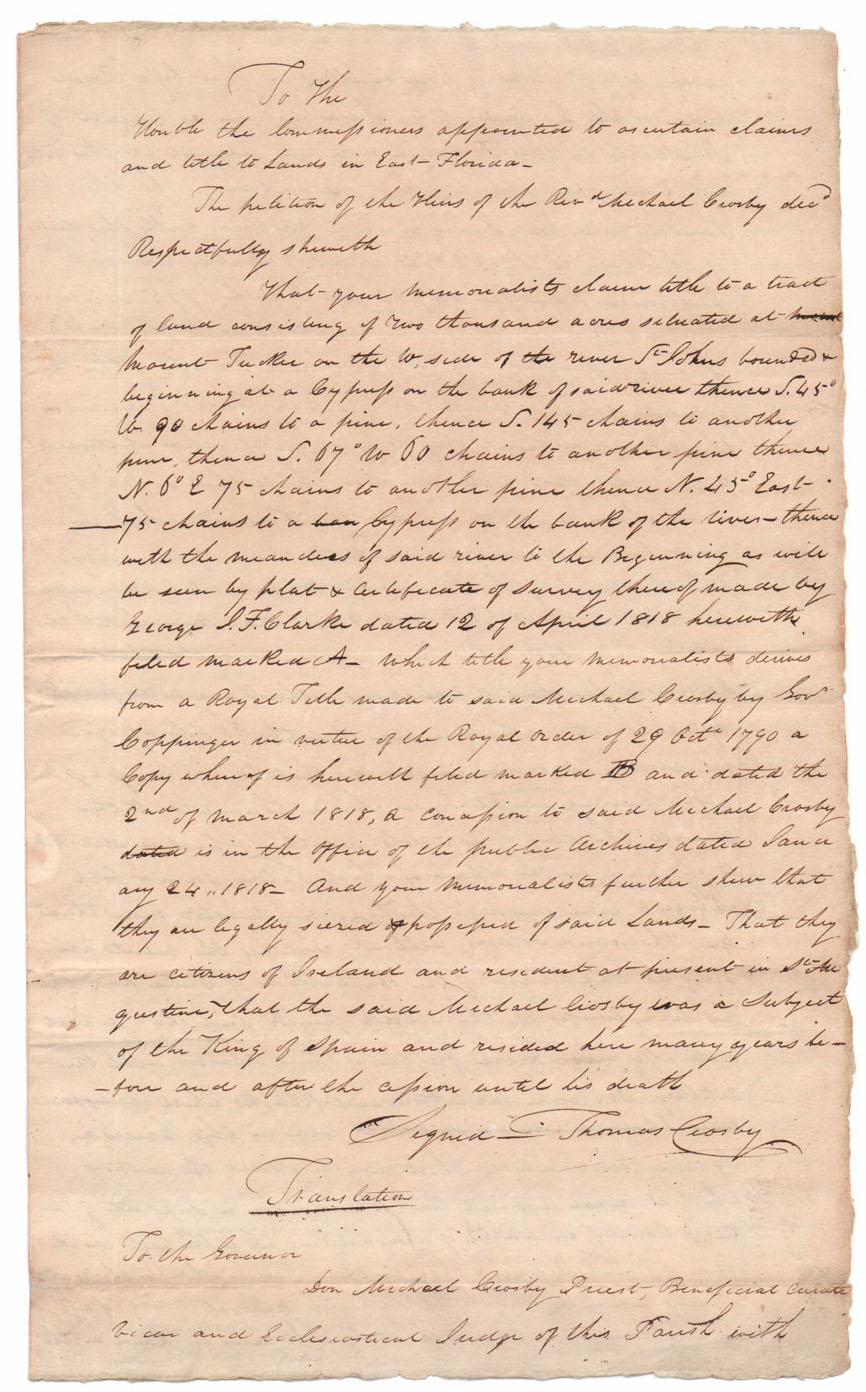 To the
Honble the Commissioners appointed to ascertain claims
and title to Lands in East-Florida-
The petition of the Heirs of the Revd Michael Crosby decd
Respectfully sheweth
That your Memorialists claim title to a tract
of land consisting of Two thousand acres situated at
Mount Tucker on the W. side of the river St Johns bounded &
beginning at a Cypress on the bank of said river thence S. 45°
W. 90 chains to a pine, thence S. 145 chains to another
pine, thence S. 67° W 60 chains to another pine thence
N. 6° E 75 chains to another pine thence N. 45° East-
75 chains to a Cypress on the bank of the river- thence
with the meanders of said river to the Beginning as will
be seen by plat & certificate of survey thereof made by
George I. F. Clarke dated 12 of April 1818 herewith
filed marked A- which title your Memorialists derives
from a Royal Title made to said Michael Crosby by Govr
Coppinger in virtue of the Royal order of 29 Octr 1790 a
Copy whereof is herewith filed marked B and dated the
2nd of March 1818, a concession to said Michael Crosby
dated is in the office of the public Archives dated Janu
ary 24 "1818- And your Memorialists further shew that
they are legally siezed & possessed of said Lands- That they
are citizens of Ireland and resident at present in St Au
gustine, that the said Michael Crosby was a Subject
of the King of Spain and resided here many years be-
-fore and after the cession until his death
Signed - Thomas Crosby
Translation
To the Governor
Don Michael Crosby Priest, Beneficial Curate
Vicar and Ecclesiastical Judge of this Parish with